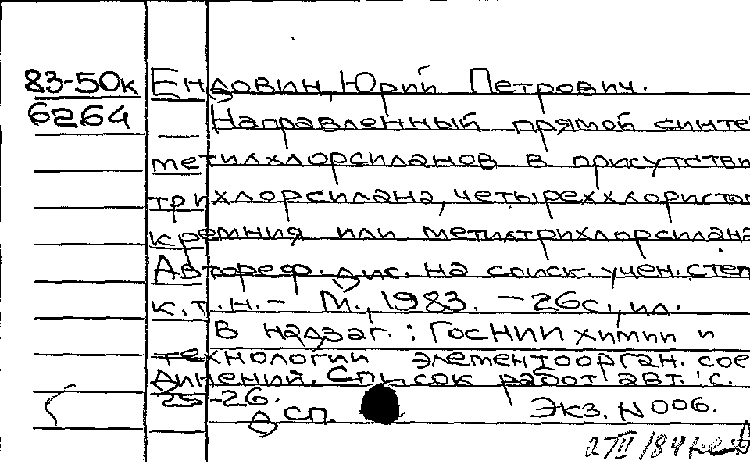 83-50к Ендовин, Юрий Петрович.
6264 Направленный прямой синте
метилхлорсиланов в присутстви
трихлорсилана, четыреххлористо
кремния или метилтрихлорсилана
Автореф. дис. на соиск. учен. степ
к.т.н. - М., 1983. - 26с., ил.
В надзаг.: ГосНИИ химии и
технологии элементоорган. сое
динений. Список работ авт.: с.
25-26.
Дсп. Экз. N 006.